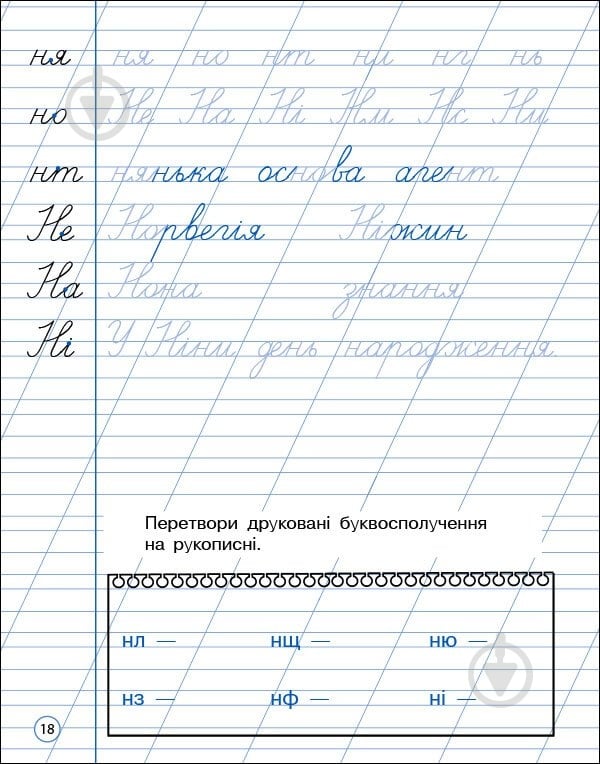 ня ня но нт ни нг нь
но Не На Ні Нм Нк Ни
нт нянька основа агент
Не Норвегія Ніжин
На Нона знання
Ні У Ніни день народження
Перетвори друковані буквосполучення
на рукописні.
нл — нщ — ню —
нз — нф — ні —
18